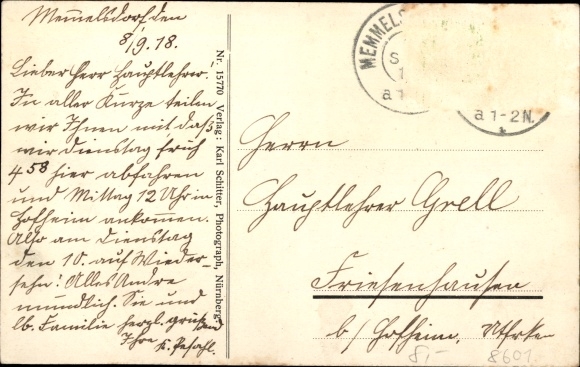 Memmelsdorf den
8/9.18.
Lieber Herr Hauptlehrer!
In aller Kürze teilen
wir Ihnen mit daß
wir Dienstag früh
4 58 hier abfahren
und Mittag 12 Uhr in
Hofheim ankommen.
Also am Dienstag
den 10. auf Wieder-
sehn! Alles Andre
mündlich. Sie und
lb. Familie herzl. grüßend
Ihre
Nr. 15770 Verlag: Karl Schitter, Photograph, Nürnberg
MEMMELS
a 1-2N.
Herrn
Hauptlehrer Grell
Friesenhausen
b/ Hofheim, Ufrken
8,-
8601